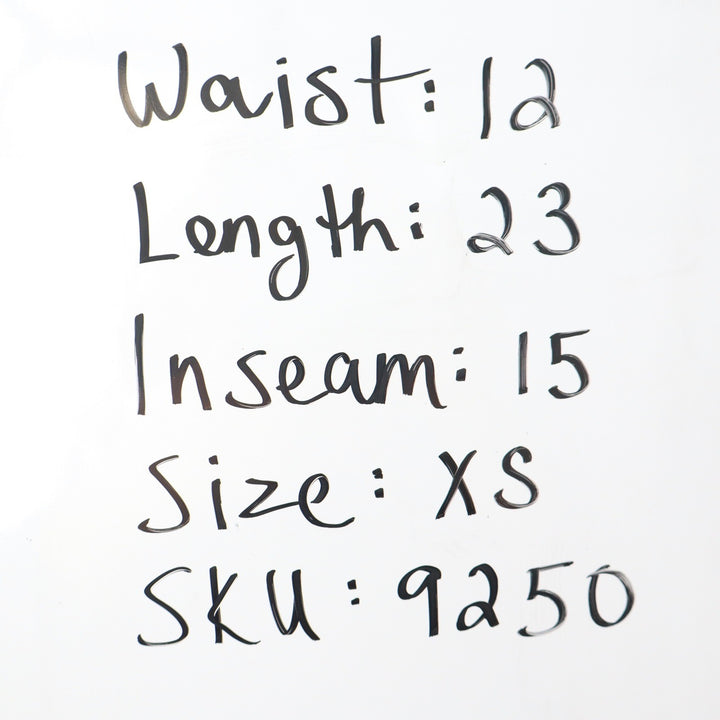 Waist: 12
Length: 23
Inseam: 15
Size: XS
SKU: 9250